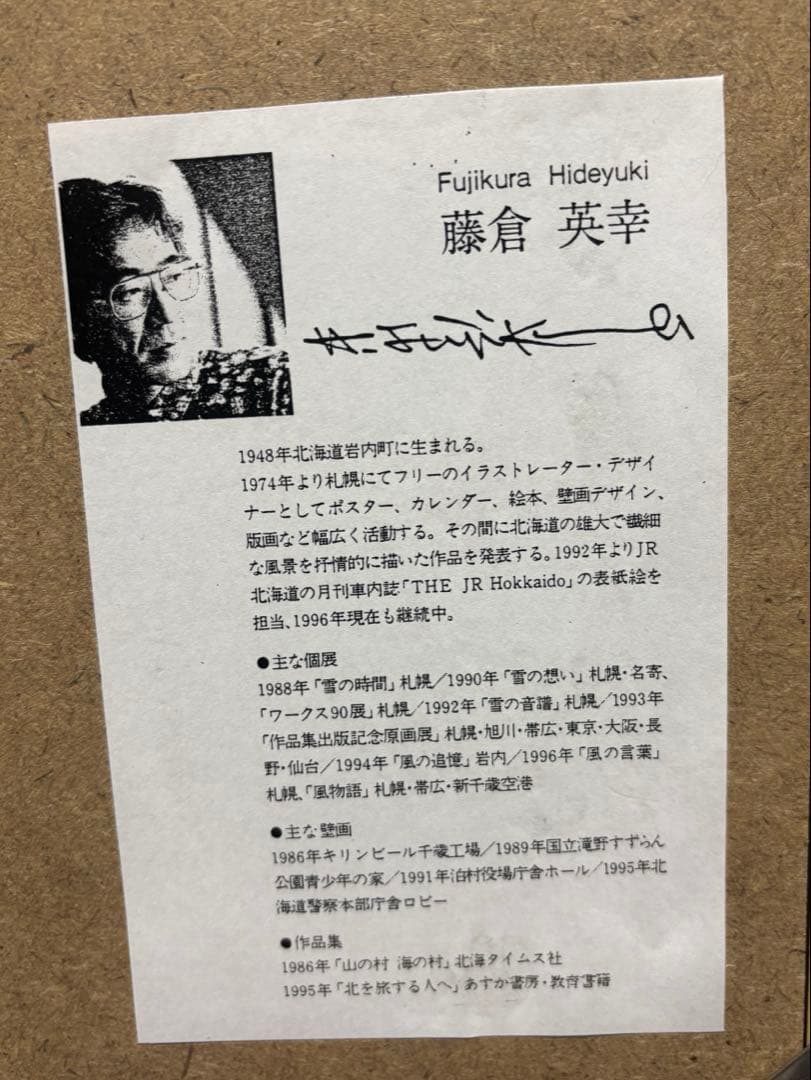 Fujikura Hideyuki
藤倉 英幸
1948年北海道岩内町に生まれる。
1974年より札幌にてフリーのイラストレーター・デザイ
ナーとしてポスター、カレンダー、絵本、壁画デザイン、
版画など幅広く活動する。その間に北海道の雄大で繊細
な風景を抒情的に描いた作品を発表する。1992年よりJR
北海道の月刊車内誌「THE JR Hokkaido」の表紙絵を
担当、1996年現在も継続中。
●主な個展
1988年「雪の時間」札幌/1990年「雪の想い」札幌・名寄、
「ワークス90展」札幌/1992年「雪の音譜」札幌/1993年
「作品集出版記念原画展」札幌・旭川・帯広・東京・大阪・長
野・仙台/1994年「風の追憶」岩内/1996年「風の言葉」
札幌、「風物語」札幌・帯広・新千歳空港
●主な壁画
1986年キリンビール千歳工場/1989年国立滝野すずらん
公園青少年の家/1991年泊村役場庁舎ホール/1995年北
海道警察本部庁舎ロビー
●作品集
1986年「山の村 海の村」北海タイムス社
1995年「北を旅する人へ」あすか書房・教育書籍